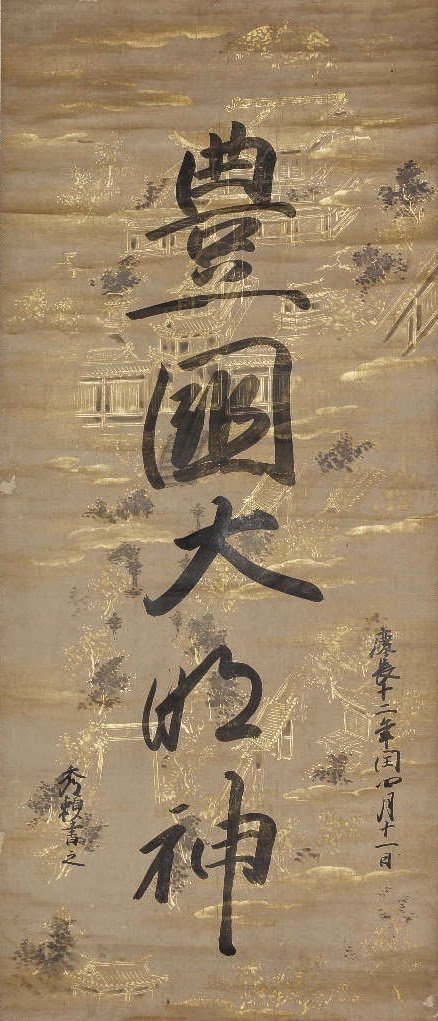 康長十二年閏四月十一日
豊國大明神
秀頼書之